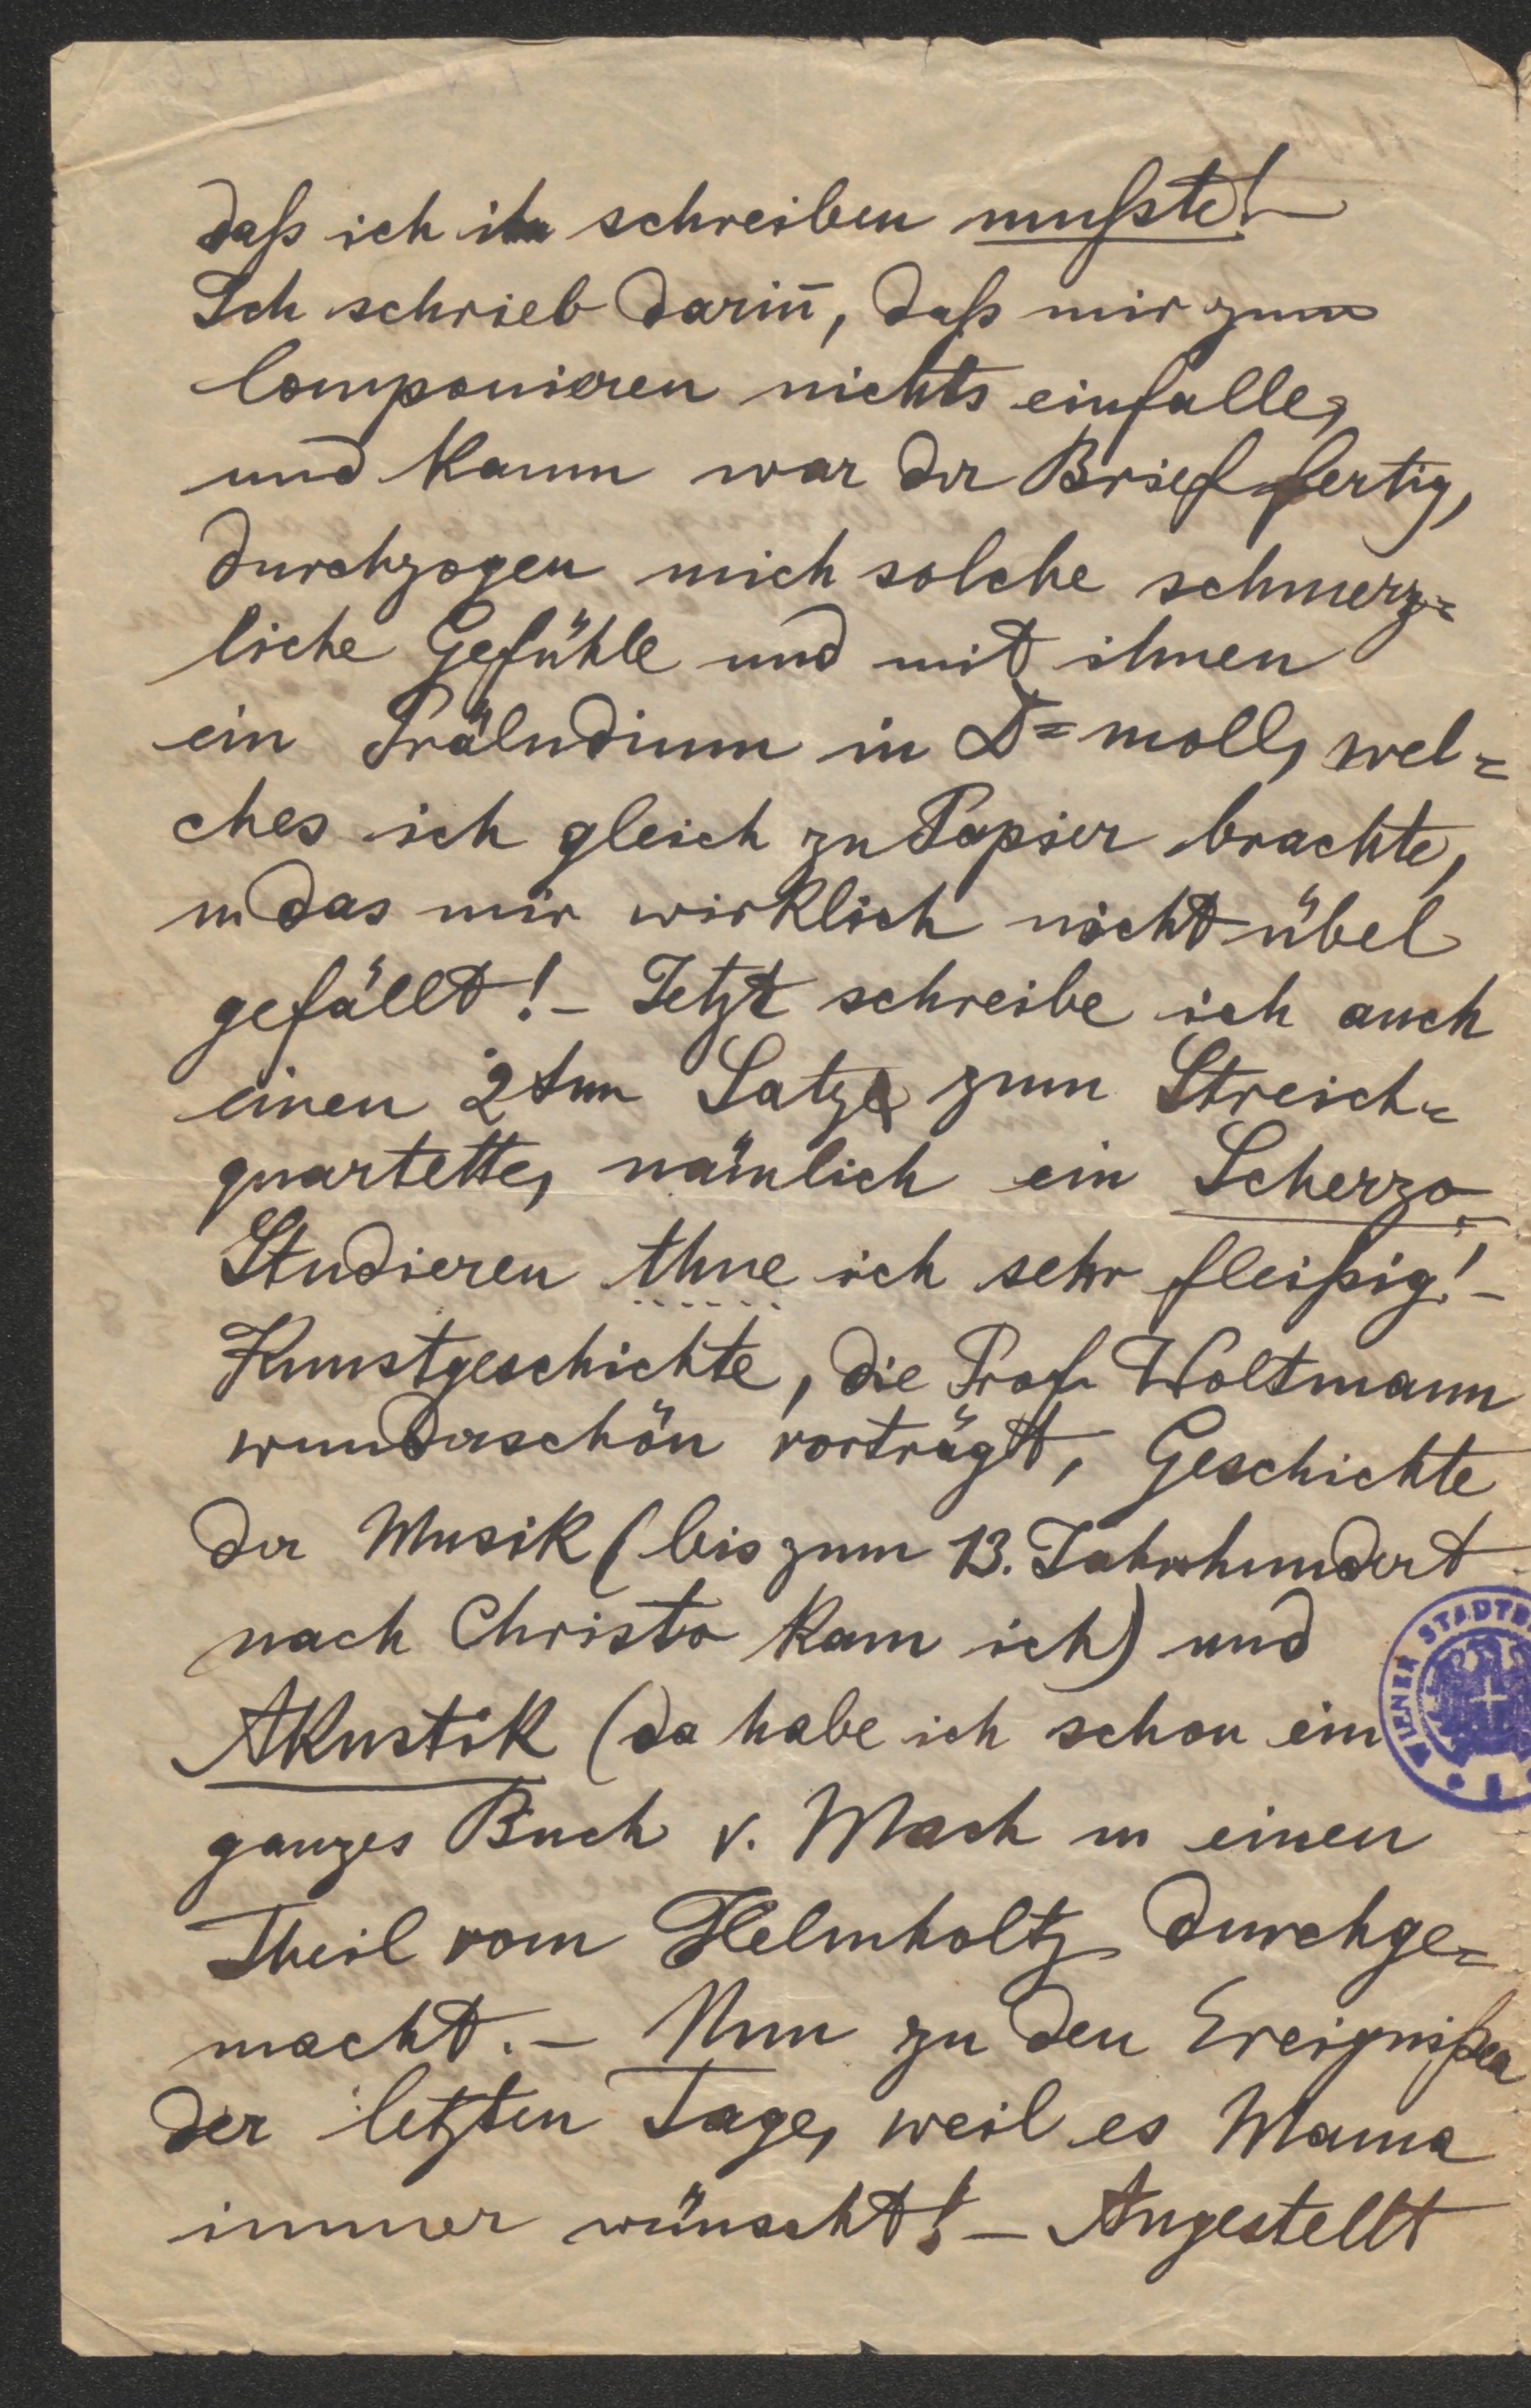 daß ich ihn schreiben mußte! –
Ich schrieb darin̄, daß mir zum
Componieren nichts einfalle,
und kaum war der Brief fertig,
durchzogen mich solche schmerz=
liche Gefühle und mit ihnen
ein Präludium in D=moll, wel=
ches ich gleich zu Papier brachte,
u das mir wirklich nicht übel
gefällt! – Jetzt schreibe ich auch
einen 2ten Satz zum Streich=
quartette, nämlich ein Scherzo.
Studieren thue ich sehr fleißig! –
Kunstgeschichte, die Prof. Woltmann
wunderschön vorträgt, Geschichte
der Musik (bis zum 13. Jahrhundert
nach Christo kam ich) und
Akustik (da habe ich schon ein
ganzes Buch v. Mach u einen
Theil vom Helmholtz durchge=
macht. – Nun zu den Ereignißen
der letzten Tage, weil es Mama
immer wünscht! – Angestellt
WIENER STADTB